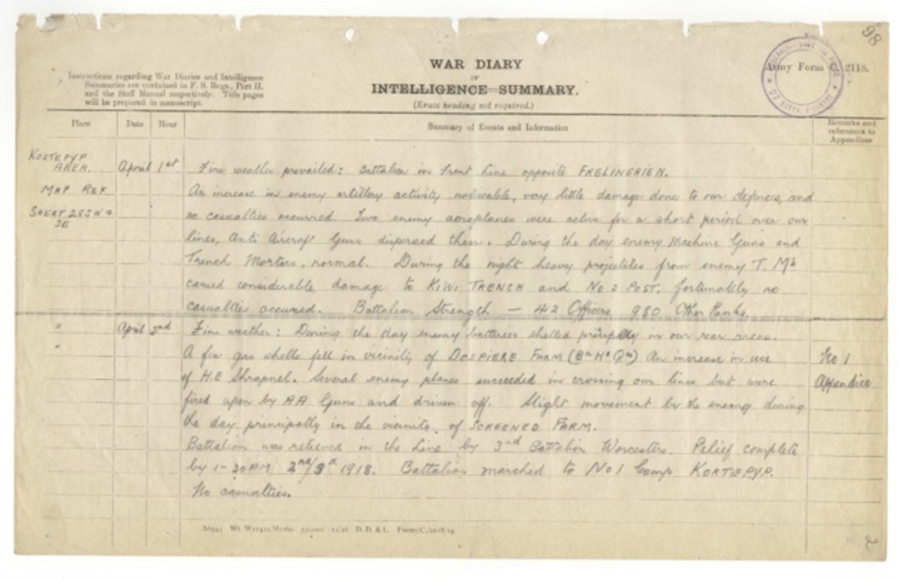 98
WAR DIARY
or
INTELLIGENCE SUMMARY.
(Erase heading not required.)
Army Form C. 2118.
Instructions regarding War Diaries and Intelligence
Summaries are contained in F. S. Regs., Part II.
and the Staff Manual respectively. Title pages
will be prepared in manuscript.
Place Date Hour Summary of Events and Information Remarks and references to Appendices
KORTEPYP AREA. April 1st Fine weather prevailed: Battalion in front line opposite FRELINGHIEN.
MAP REF An increase in enemy artillery activity noticeable, very little damage done to our defences, and
SHEET 28 no casualties occurred. Two enemy aeroplanes were active for a short period over our
lines, Anti Aircraft Guns dispersed them. During the day enemy Machine Guns and
Trench Mortars, normal. During the night heavy projectiles from enemy T. Ms
caused considerable damage to KIWI TRENCH and No 2 POST, fortunately no
casualties occurred. Battalion Strength — 42 Officers 980 Other Ranks.
" April 2nd Fine weather: During the day enemy batteries shelled principally in our rear areas.
" A few gas shells fell in vicinity of DESPIERE FARM (Bn Hd Qrs) An increase in use No 1
of H.E Shrapnel. Several enemy planes succeeded in crossing our lines but were Appendice
fired upon by AA Guns and driven off. Slight movement by the enemy during
the day principally in the vicinity of SCREENED FARM.
Battalion was relieved in the Line by 3rd Battalion Worcesters. Relief complete
by 1-30AM 2nd/3rd 1918. Battalion marched to No 1 Camp KORTEPYP.
No casualties.
D. D. & L.
2